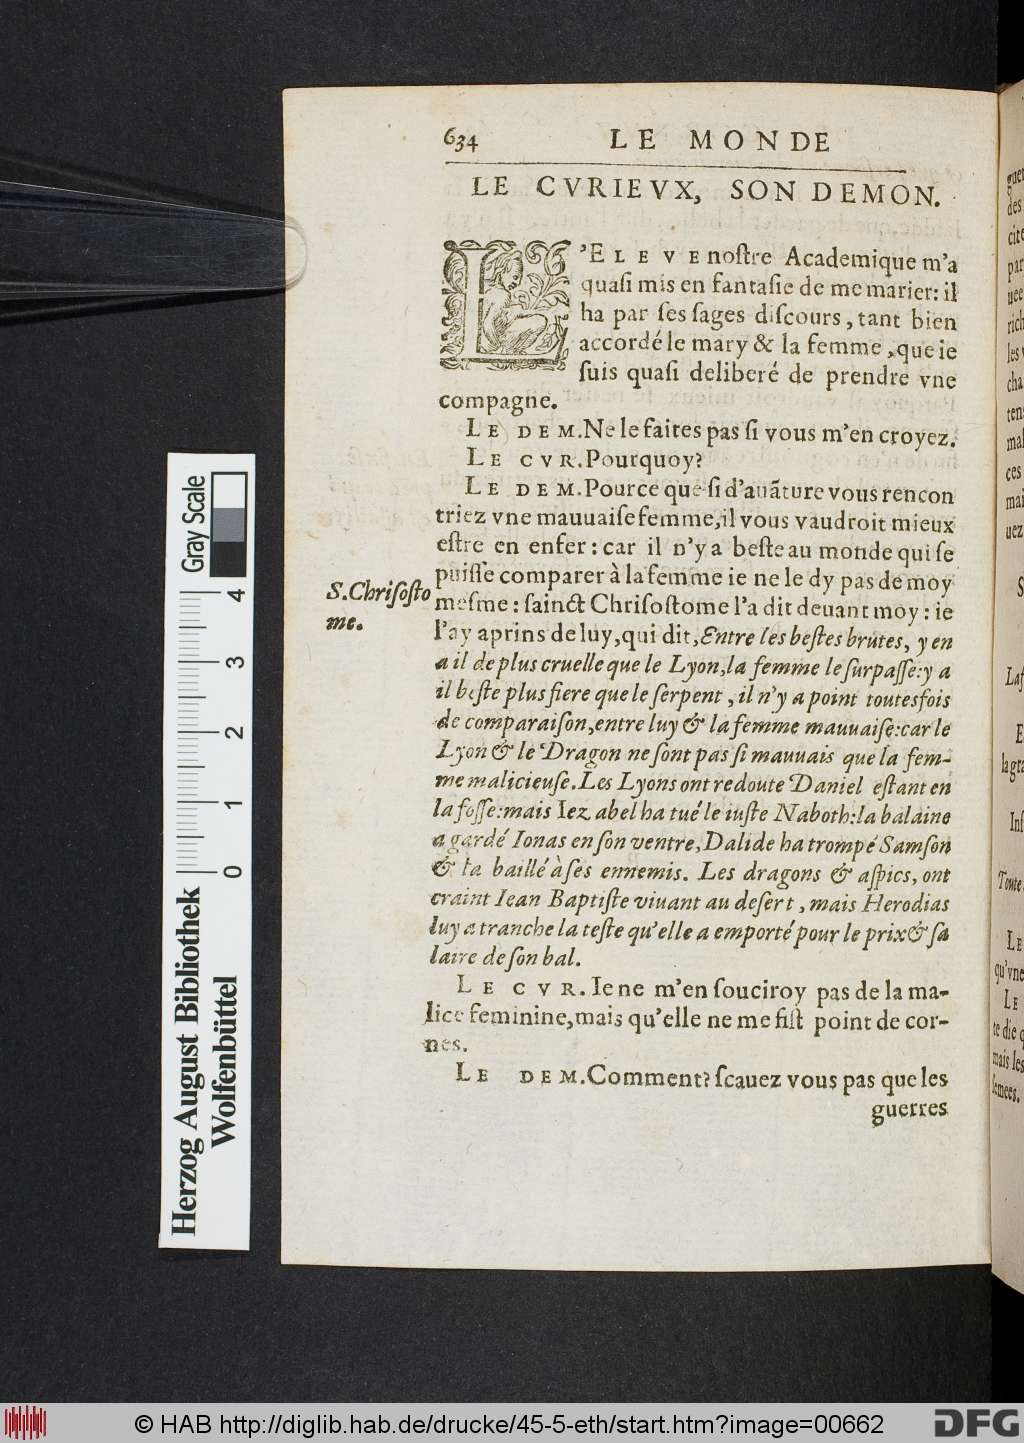 634 LE MONDE
LE CVRIEVX, SON DEMON.
L'ELEVE noſtre Academique m'a
quaſi mis en fantaſie de me marier: il
ha par ſes ſages diſcours, tant bien
accordé le mary & la femme, que ie
ſuis quaſi deliberé de prendre vne
compagne.
LE DEM. Ne le faites pas ſi vous m'en croyez.
LE CVR. Pourquoy?
LE DEM. Pource que ſi d'auãture vous rencon
triez vne mauuaiſe femme, il vous vaudroit mieux
eſtre en enfer: car il n'y a beſte au monde qui ſe
puiſſe comparer à la femme ie ne le dy pas de moy
S. Chriſoſto
me.
meſme: ſainct Chriſoſtome l'a dit deuant moy: ie
l'ay aprins de luy, qui dit, Entre les beſtes brutes, y en
a il de plus cruelle que le Lyon, la femme le ſurpaſſe: y a
il beſte plus fiere que le ſerpent, il n'y a point toutesfois
de comparaiſon, entre luy & la femme mauuaiſe: car le
Lyon & le Dragon ne ſont pas ſi mauuais que la fem-
me malicieuſe. Les Lyons ont redoute Daniel eſtant en
la foſſe: mais Iezabel ha tué le iuſte Naboth: la balaine
a gardé Ionas en ſon ventre, Dalide ha trompé Samſon
& l'a baillé à ſes ennemis. Les dragons & aſpics, ont
craint Iean Baptiſte viuant au deſert, mais Herodias
luy a tranche la teſte qu'elle a emporté pour le prix & ſa
laire de ſon bal.
LE CVR. Ie ne m'en ſouciroy pas de la ma-
lice feminine, mais qu'elle ne me fiſt point de cor-
nes.
LE DEM. Comment? ſcauez vous pas que les
guerres
Gray Scale
0 1 2 3 4
Herzog August Bibliothek
Wolfenbüttel
© HAB http://diglib.hab.de/drucke/45-5-eth/start.htm?image=00662
DFG